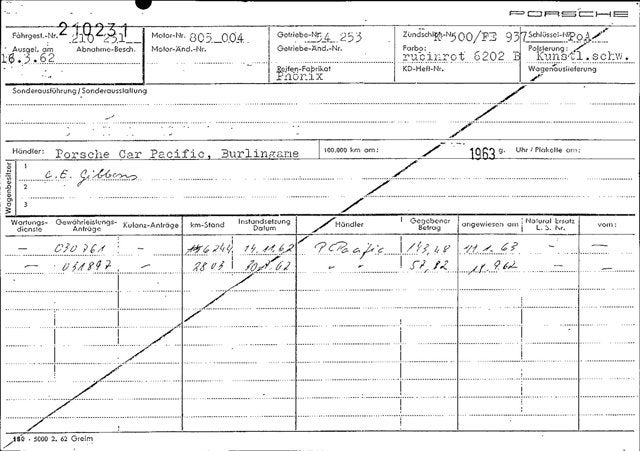 PORSCHE
210231
Fahrgest.-Nr. 210 231 Motor-Nr. 805 004 Getriebe-Nr. 54 253 Zündschl.-Nr. K 500/FE 937 Schlüssel-Nr. PoA
Ausgel. am Abnahme-Besch. Motor-Änd.-Nr. Getriebe-Änd.-Nr. Farbe: Polsterung:
16.3.62 rubinrot 6202 B Kunstl.schw.
Reifen-Fabrikat KD-Heft-Nr. Wagenauslieferung
Phönix
Sonderausführung / Sonderausstattung
Händler: Porsche Car Pacific, Burlingame 100.000 km am: 1963 g. Uhr / Plakette am:
Wagenbesitzer
1 C.E. Gibbons
2
3
Wartungs-dienste Gewährleistungs-Anträge Kulanz-Anträge km-Stand Instandsetzung Datum Händler Gegebener Betrag angewiesen am Natural Ersatz L. S. Nr. vom:
— 030761 — 6244 14.11.62 P. Pacific 143,48 — —
— 031897 — 2803 62 " " 57,82 — —
180 - 5000 2. 62 Greim